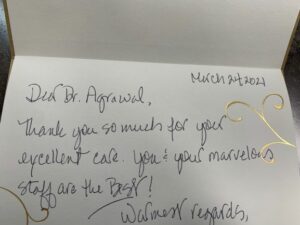 March 24 2021
Dear Dr. Agrawal,
Thank you so much for your
excellent care. You & your marvelous
staff are the Best!
Warmest regards,